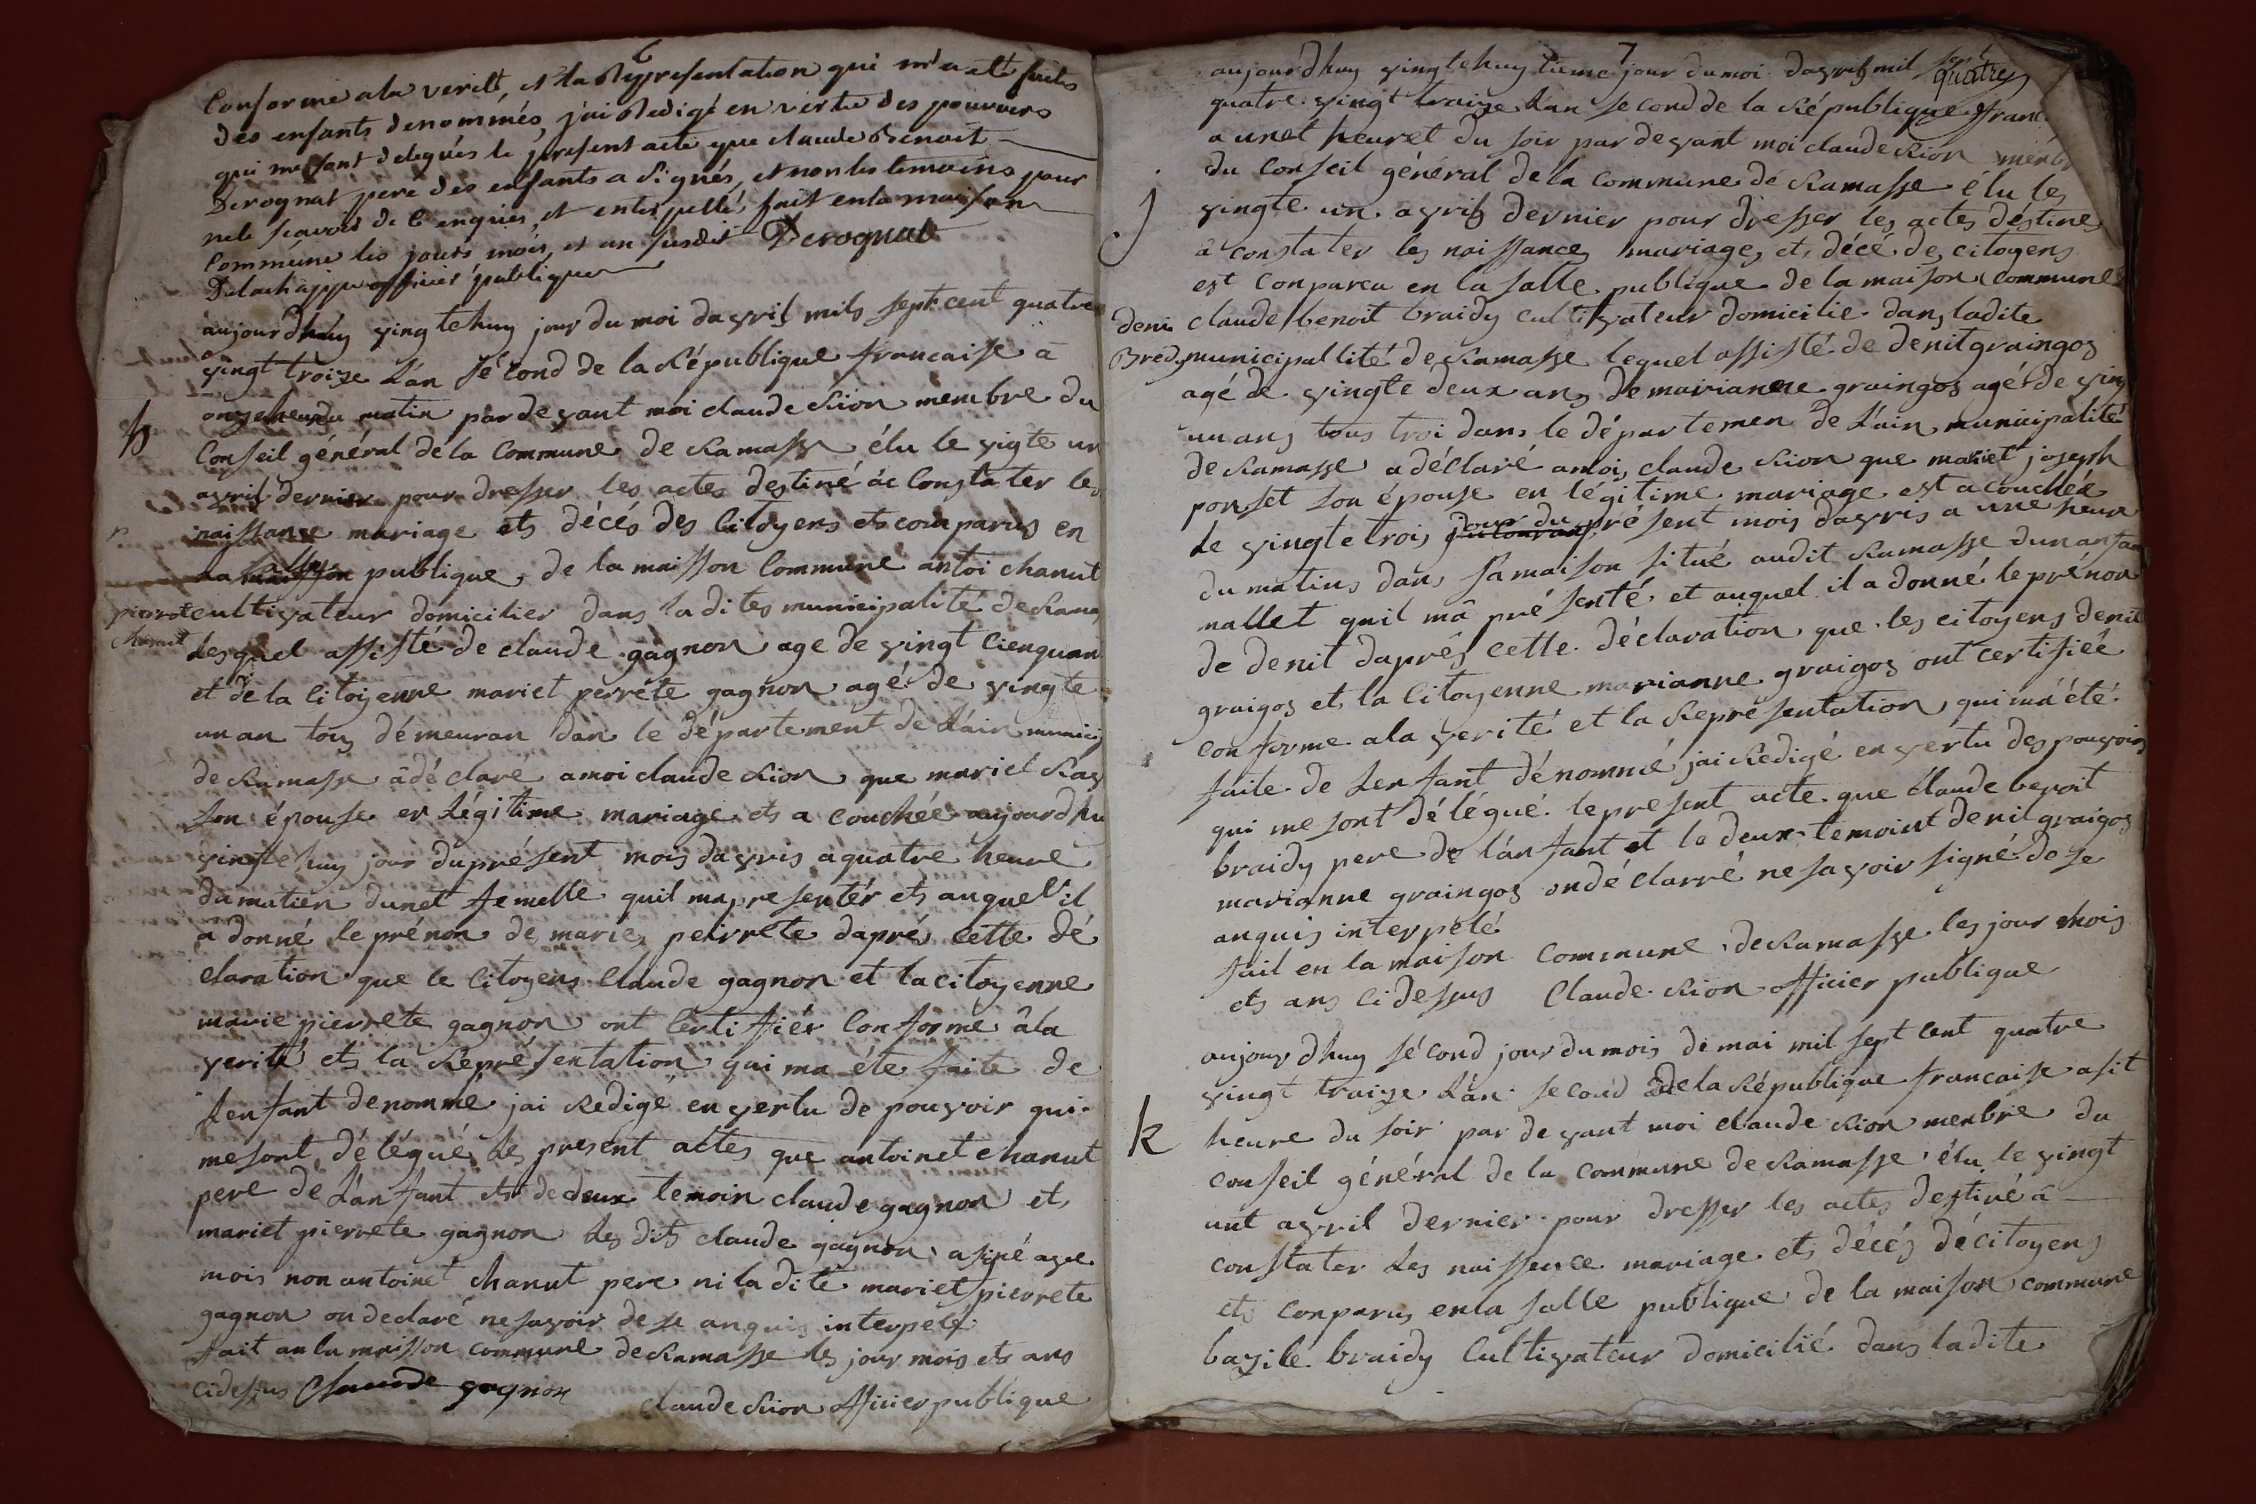 6
Conforme ala verité, et la Representation qui m'a été faites
des enfants denommés, j'ai Redigé en vertu des pouvoirs
qui me sont delegués le present acte que claude Benoit
Derognat pere des enfants a Signés, et non les temoins pour
ne le scavoir de l'enquies, et enterpellé, fait en la maison
Commune les jours mois, et an susdit Derognat
officier publique
aujourdhuy vingtehuy jour du moi davril mils sept cent quatre
vingt troize L'an sécond de la République francaise à
onze heur du matin par devant moi claude Rion membre du
h
Conseil général de la Commune de Ramasse élu le vigte un
avril dernier pour dresser les actes destiné àc Constater les
naissance mariage ets décés des Citoyens ets comparus en
publique, de la maisson Commune antoi chanut
pierrete
chanut
cultivateur domicilier dans la dites municipalité de Rama
Lesquel assisté de claude gagnon age de vingt cienquan
et de la Citoyenne mariet perréte gagnon agé de vingte
un an tous démeuran dan le département de L'ain municip
de Ramasse âdé claré amoi claude Rion que mariet Ray
son épouse en Légitime mariage ets a couchée aujourdhu
vingte huy jour du présent mois davris a quatre heure
du matien dunet femelle quil ma presentér ets auquel il
a donné le prénon de marie peirrete daprés cette dé
claration que le Citoyens Claude gagnon et la citoyenne
marie pierrete gagnon ont Certifiér Conforme âla
verité ets la Représentation qui ma éte faite de
Lenfant denommé jai Redigé en vertu de pouvoir qui
me sont délégué Les present actes que antoinet chanut
pere de Lanfant ets de deux temoin claude gagnon et
mariet pierrete gagnon Les dits claude gagnon a siné avec
mois non antoinet chanut pere ni la dite mariet pierrete
gagnon on declaré ne savoir de se anquis interpélé
fait an la maisson commune de Ramasse les jour mois ets ans
cidesus Claude gagnon
claude Rion officier publique
7
aujourdhuy vingtehuy tieme jour du moi davris mil sept
quatre
quatre vingt traize Lan second de la République franc
a unet heuret du soir par devant moi claude Rion menb
du Conseil général de la Commune de Ramasse élu les
j
vingte un avris dernier pour dresser les actes déstine
à constater les naissances mariage ets décé des citoyens
est Conparcu en la salle publique de la maison commune
deni
Bredy
claude benoit braidy cultivateur domicilie dans ladite
municipallité de Ramasse lequel assisté de denit graingos
agé de vingte deux ans de marianne graingos agér de ving
un ans tous troi dans le départemen de L'ain municipalité
de Ramasse a déclaré amois claude Rion que mariet joseph
ponset son épouse en légitime mariage est acouchée
Le vingte trois jour du présent mois davris a une heur
du matins dans sa maison situé audit Ramasse dun anfan
mallet quil mâ présenté et auquel il a donné le prénon
de denit daprês cette déclaration que les citoyens denit
graigos ets la Citoyenne marianne graigos ont certifiée
conforme ala verité et la Représentation qui ma été
faite de Lenfant dénommé jai Redigé en vertu des pouvoirs
qui me sont délégué le present acte que claude benoit
braidy pere de lanfant et le deux temoint denit graigos
marianne graingos ondé clarré ne savoir signé de se
anquis interpélé
fait en la maison commune de Ramasse les jour mois
ets ans cidessus Claude Rion officier publique
aujourdhuy sécond jour du mois de mai mil sept cent quatre
vingt traize L'an second de la République francaise a sit
k
heure du soir par devant moi claude Rion menbre du
conseil général de la commune de Ramasse élu le vingt
unt avril dernier pour dresser les actes destiné â
constater Les naissence mariage ets décés décitoyens
ets conparus en la salle publique de la maison commune
bazile braidy Cultivateur domicilié dans ladite